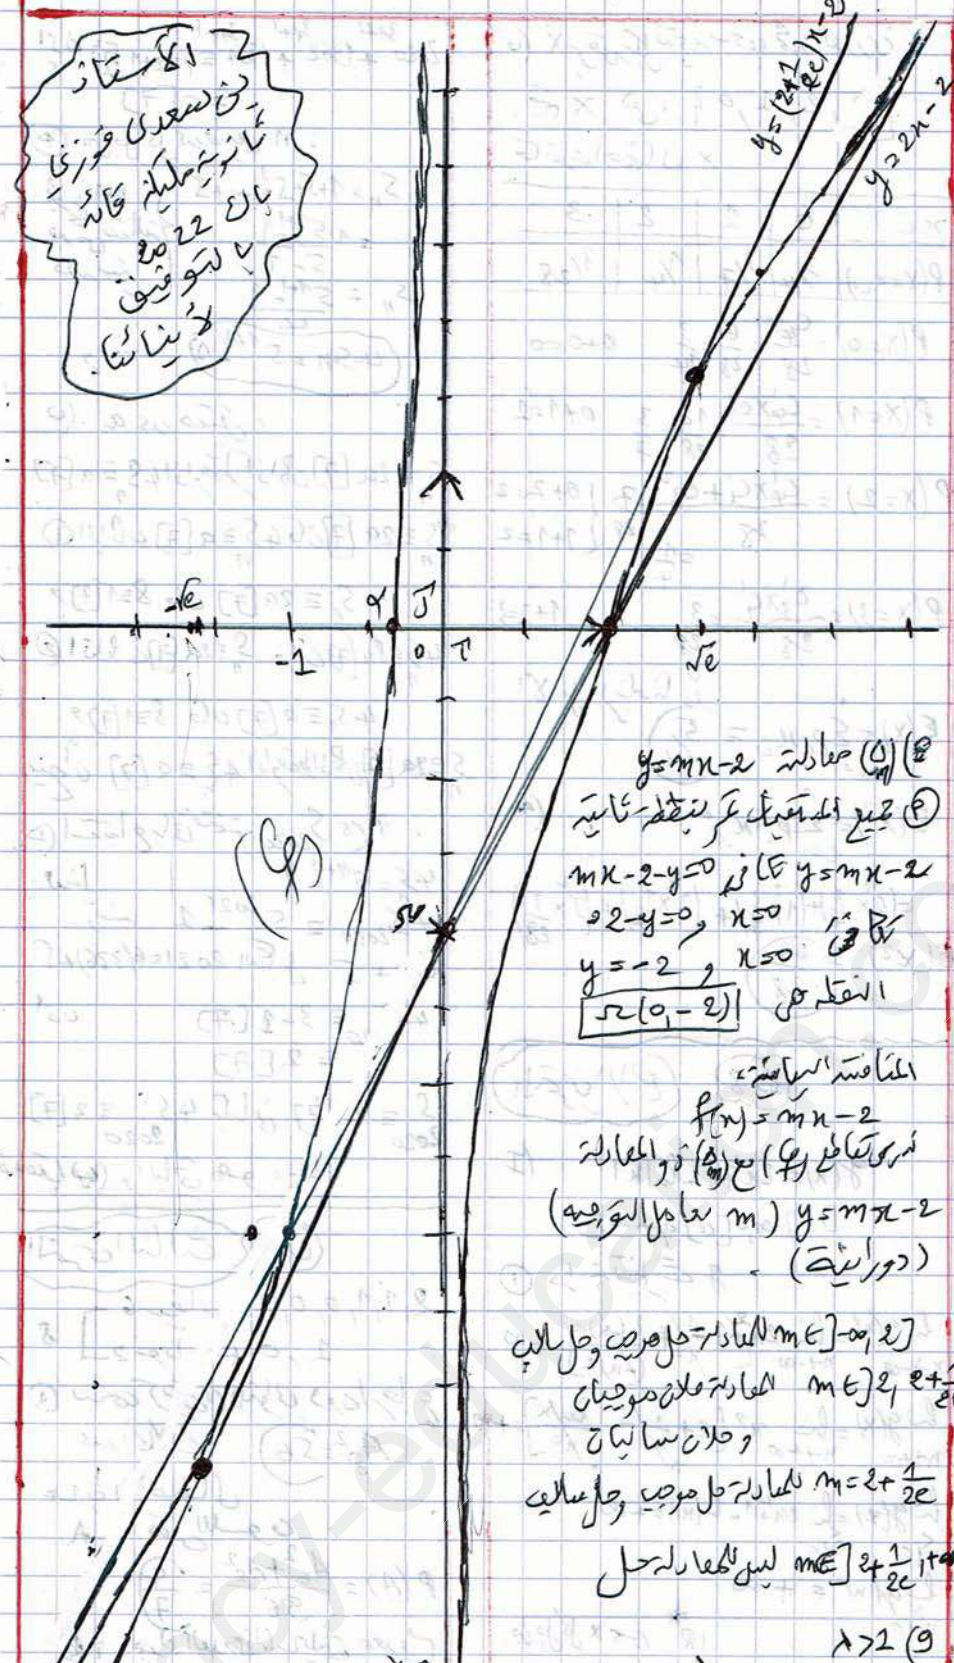 الأستاذ
بن سعدي فوزي
ثانوية مليكة قائد
باك 2022
بالتوفيق
لأبنائنا.
y=(2+1/2e)x-2
y=2x-2
-√e
-1
α
0
√e
(Cf)
Ω
(Δm) معادلة y=mx-2
جميع المستقيمات تمر بنقطة ثابتة
y=mx-2 تكافئ mx-2-y=0
x=0 و -2-y=0
تكافئ x=0 و y=-2
النقطة هي Ω(0,-2)
المناقشة البيانية:
f(x)=mx-2
ندرس تقاطع (Cf) مع (Δm) ذو المعادلة
y=mx-2 (m معامل التوجيه)
(دورانية).
m∈]-∞,2] للمعادلة حل موجب وحل سالب
m∈]2, 2+1/2e المعادلة حلان موجبان
وحلان سالبان
m=2+1/2e للمعادلة حل موجب وحل سالب
m∈]2+1/2e,+∞ ليس للمعادلة حل
λ>1 (9